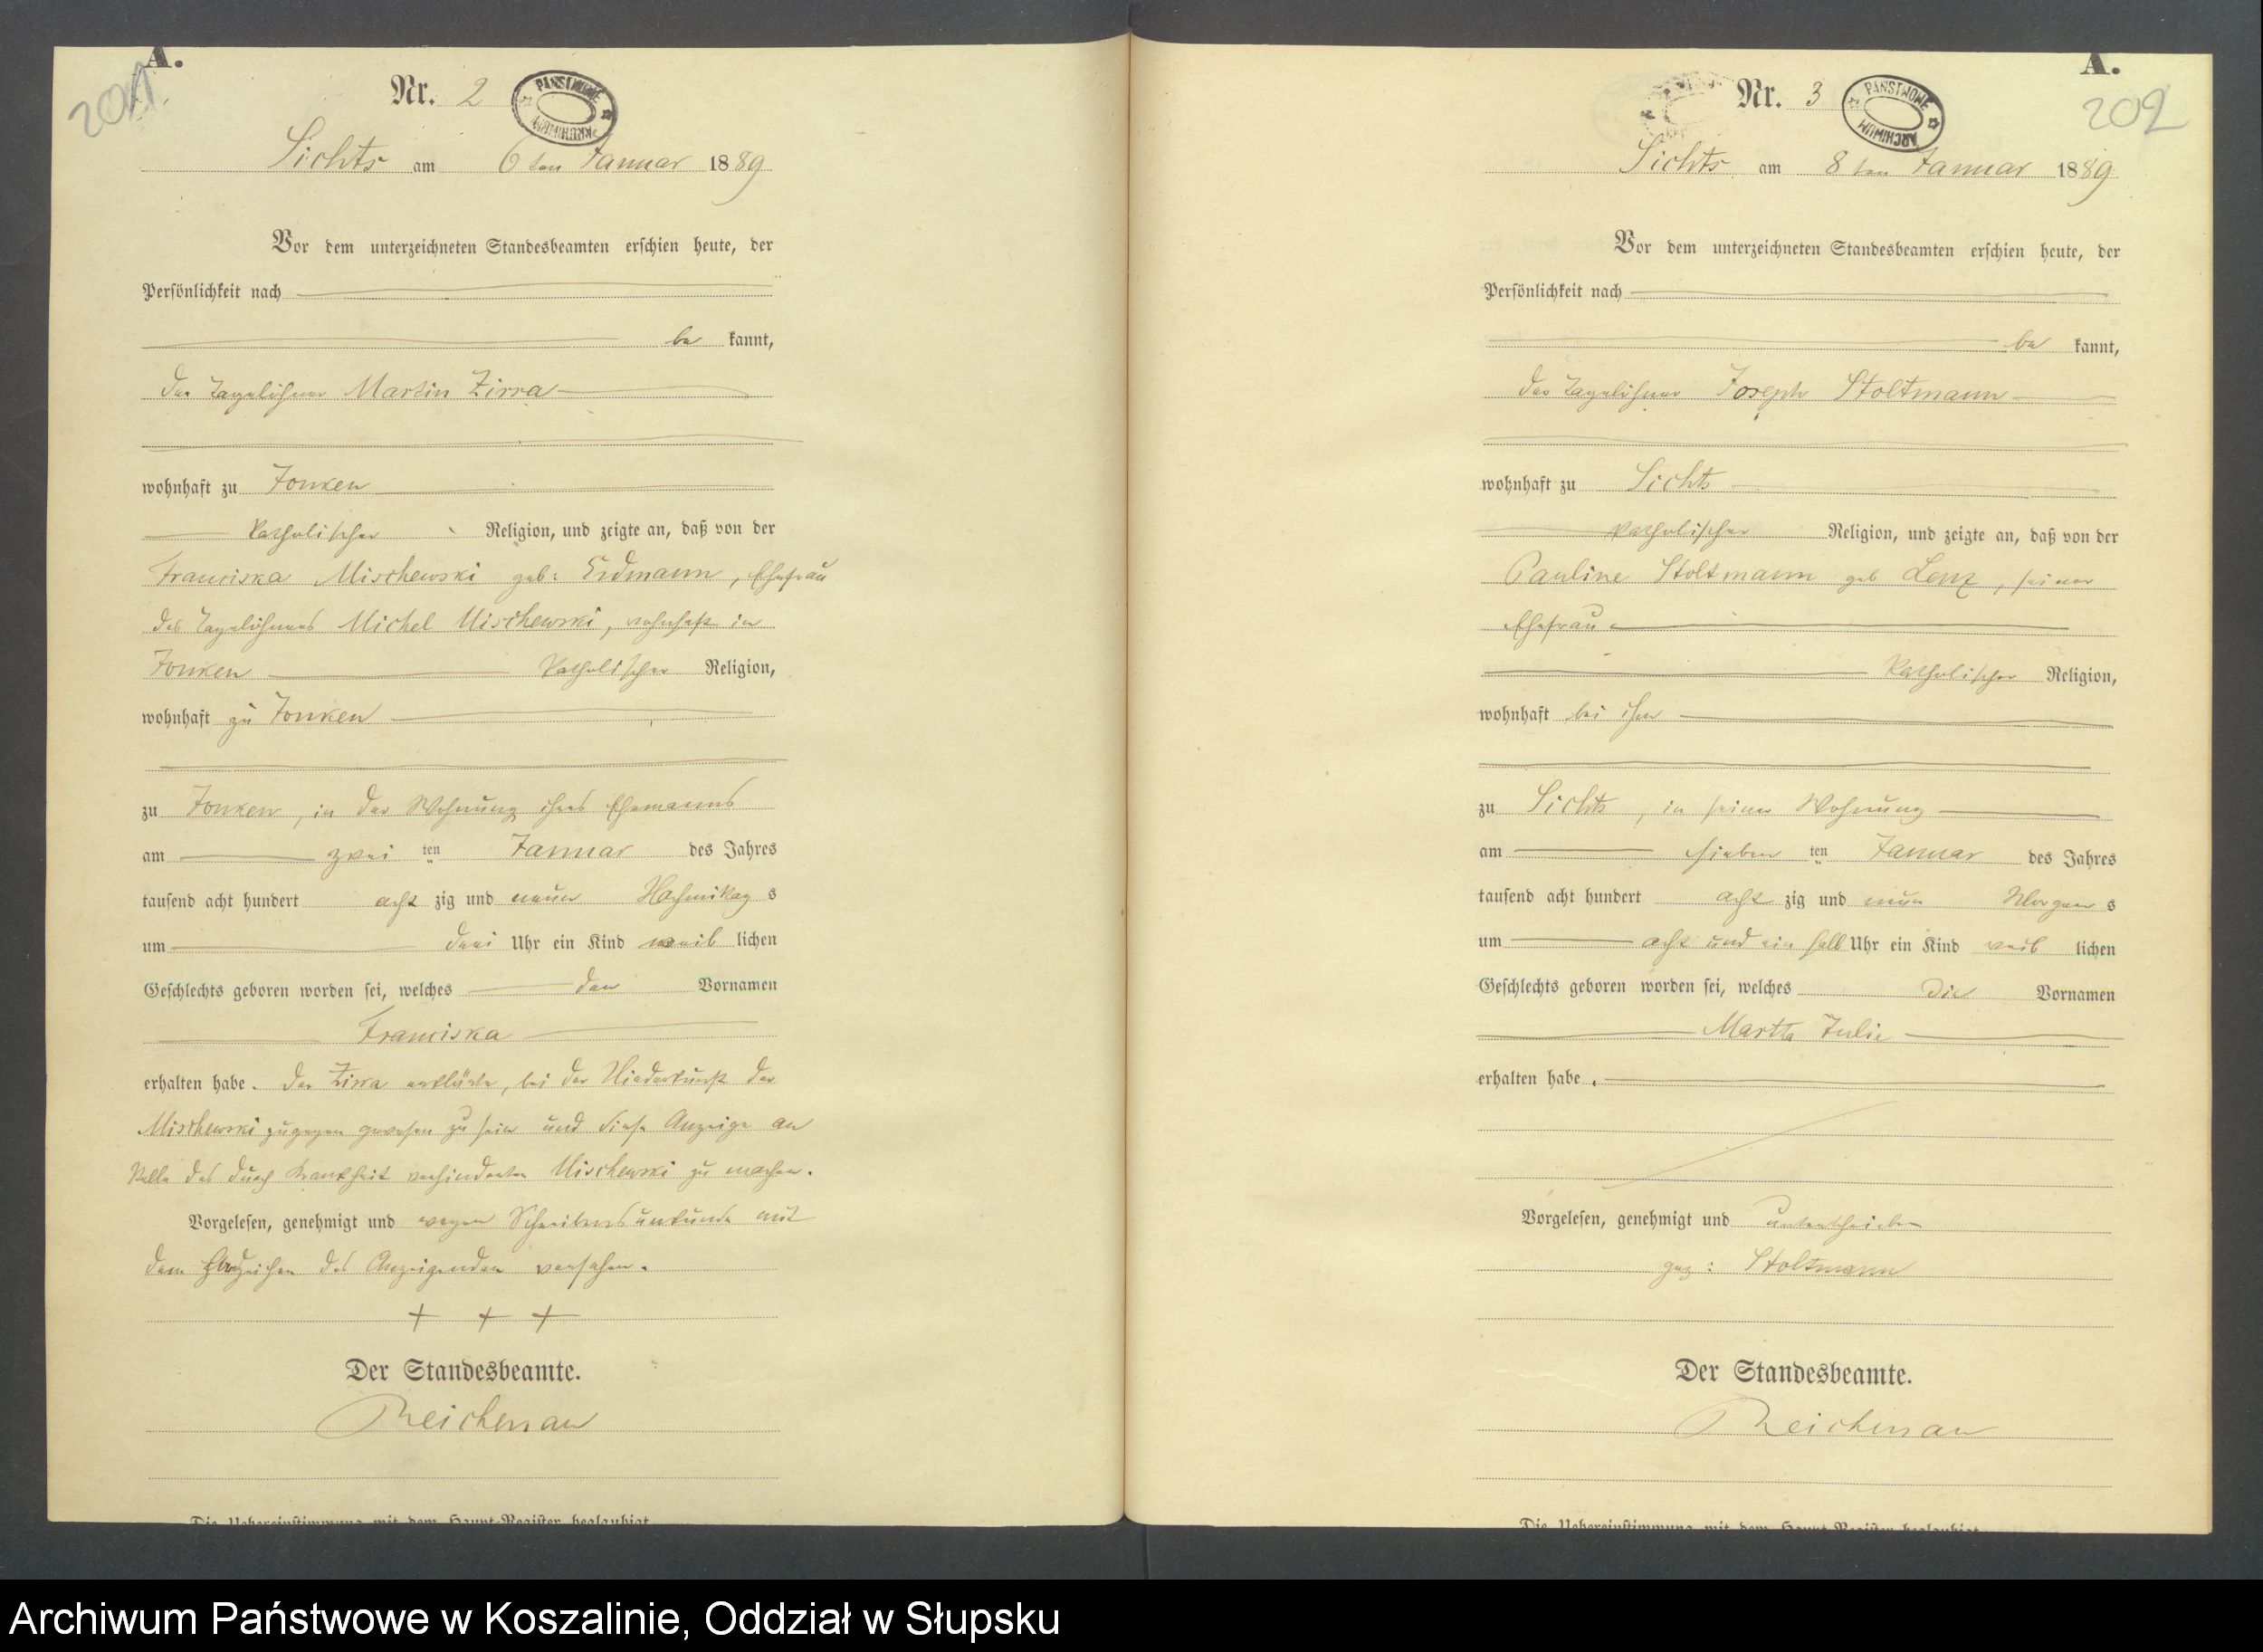 A.
201
Nr. 2
PAŃSTWOWE ARCHIWUM
Sichts am 6ten Januar 1889
Vor dem unterzeichneten Standesbeamten erschien heute, der
Persönlichkeit nach
be kannt,
der Tagelöhner Martin Zirra
wohnhaft zu Jonken
katholischer Religion, und zeigte an, daß von der
Franciska Mischewski geb: Erdmann, Ehefrau
des Tagelöhners Michel Mischewski, wohnhaft in
Jonken katholischer Religion,
wohnhaft zu Jonken
zu Jonken, in der Wohnung ihres Ehemanns
am zwei ten Januar des Jahres
tausend acht hundert acht zig und neun Nachmittag s
um drei Uhr ein Kind weib lichen
Geschlechts geboren worden sei, welches den Vornamen
Franciska
erhalten habe. Der Zirra erklärte, bei der Niederkunft der
Mischewski zugegen gewesen zu sein und diese Anzeige an
Stelle des durch Krankheit verhinderten Mischewski zu machen.
Vorgelesen, genehmigt und wegen Schreibensunkunde mit
dem Handzeichen des Anzeigenden versehen.
+ + +
Der Standesbeamte.
Reichenau
Die Uebereinstimmung mit dem Haupt-Register beglaubigt
A.
202
Nr. 3
PAŃSTWOWE ARCHIWUM
Sichts am 8ten Januar 1889
Vor dem unterzeichneten Standesbeamten erschien heute, der
Persönlichkeit nach
be kannt,
der Tagelöhner Joseph Stoltmann
wohnhaft zu Sichts
katholischer Religion, und zeigte an, daß von der
Pauline Stoltmann geb Lenz, seiner
Ehefrau
katholischer Religion,
wohnhaft bei ihm
zu Sichts, in seiner Wohnung
am sieben ten Januar des Jahres
tausend acht hundert acht zig und neun Morgen s
um acht und ein halb Uhr ein Kind weib lichen
Geschlechts geboren worden sei, welches die Vornamen
Martha Julie
erhalten habe.
Vorgelesen, genehmigt und unterschrieben
gez: Stoltmann
Der Standesbeamte.
Reichenau
Die Uebereinstimmung mit dem Haupt-Register beglaubigt
Archiwum Państwowe w Koszalinie, Oddział w Słupsku